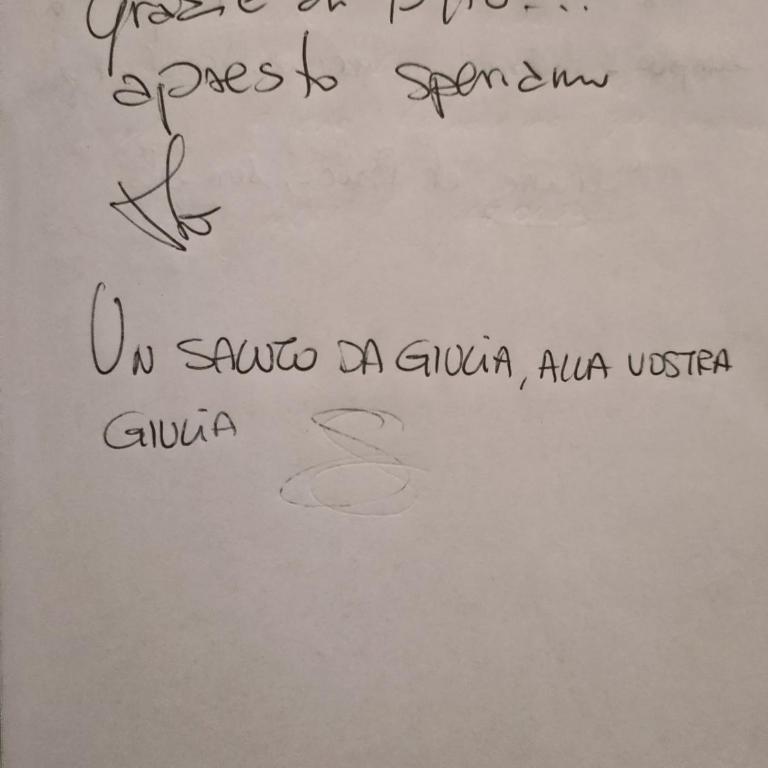 Grazie di
apresto speriamo
UN SALUTO DA GIULIA, ALLA VOSTRA
GIULIA